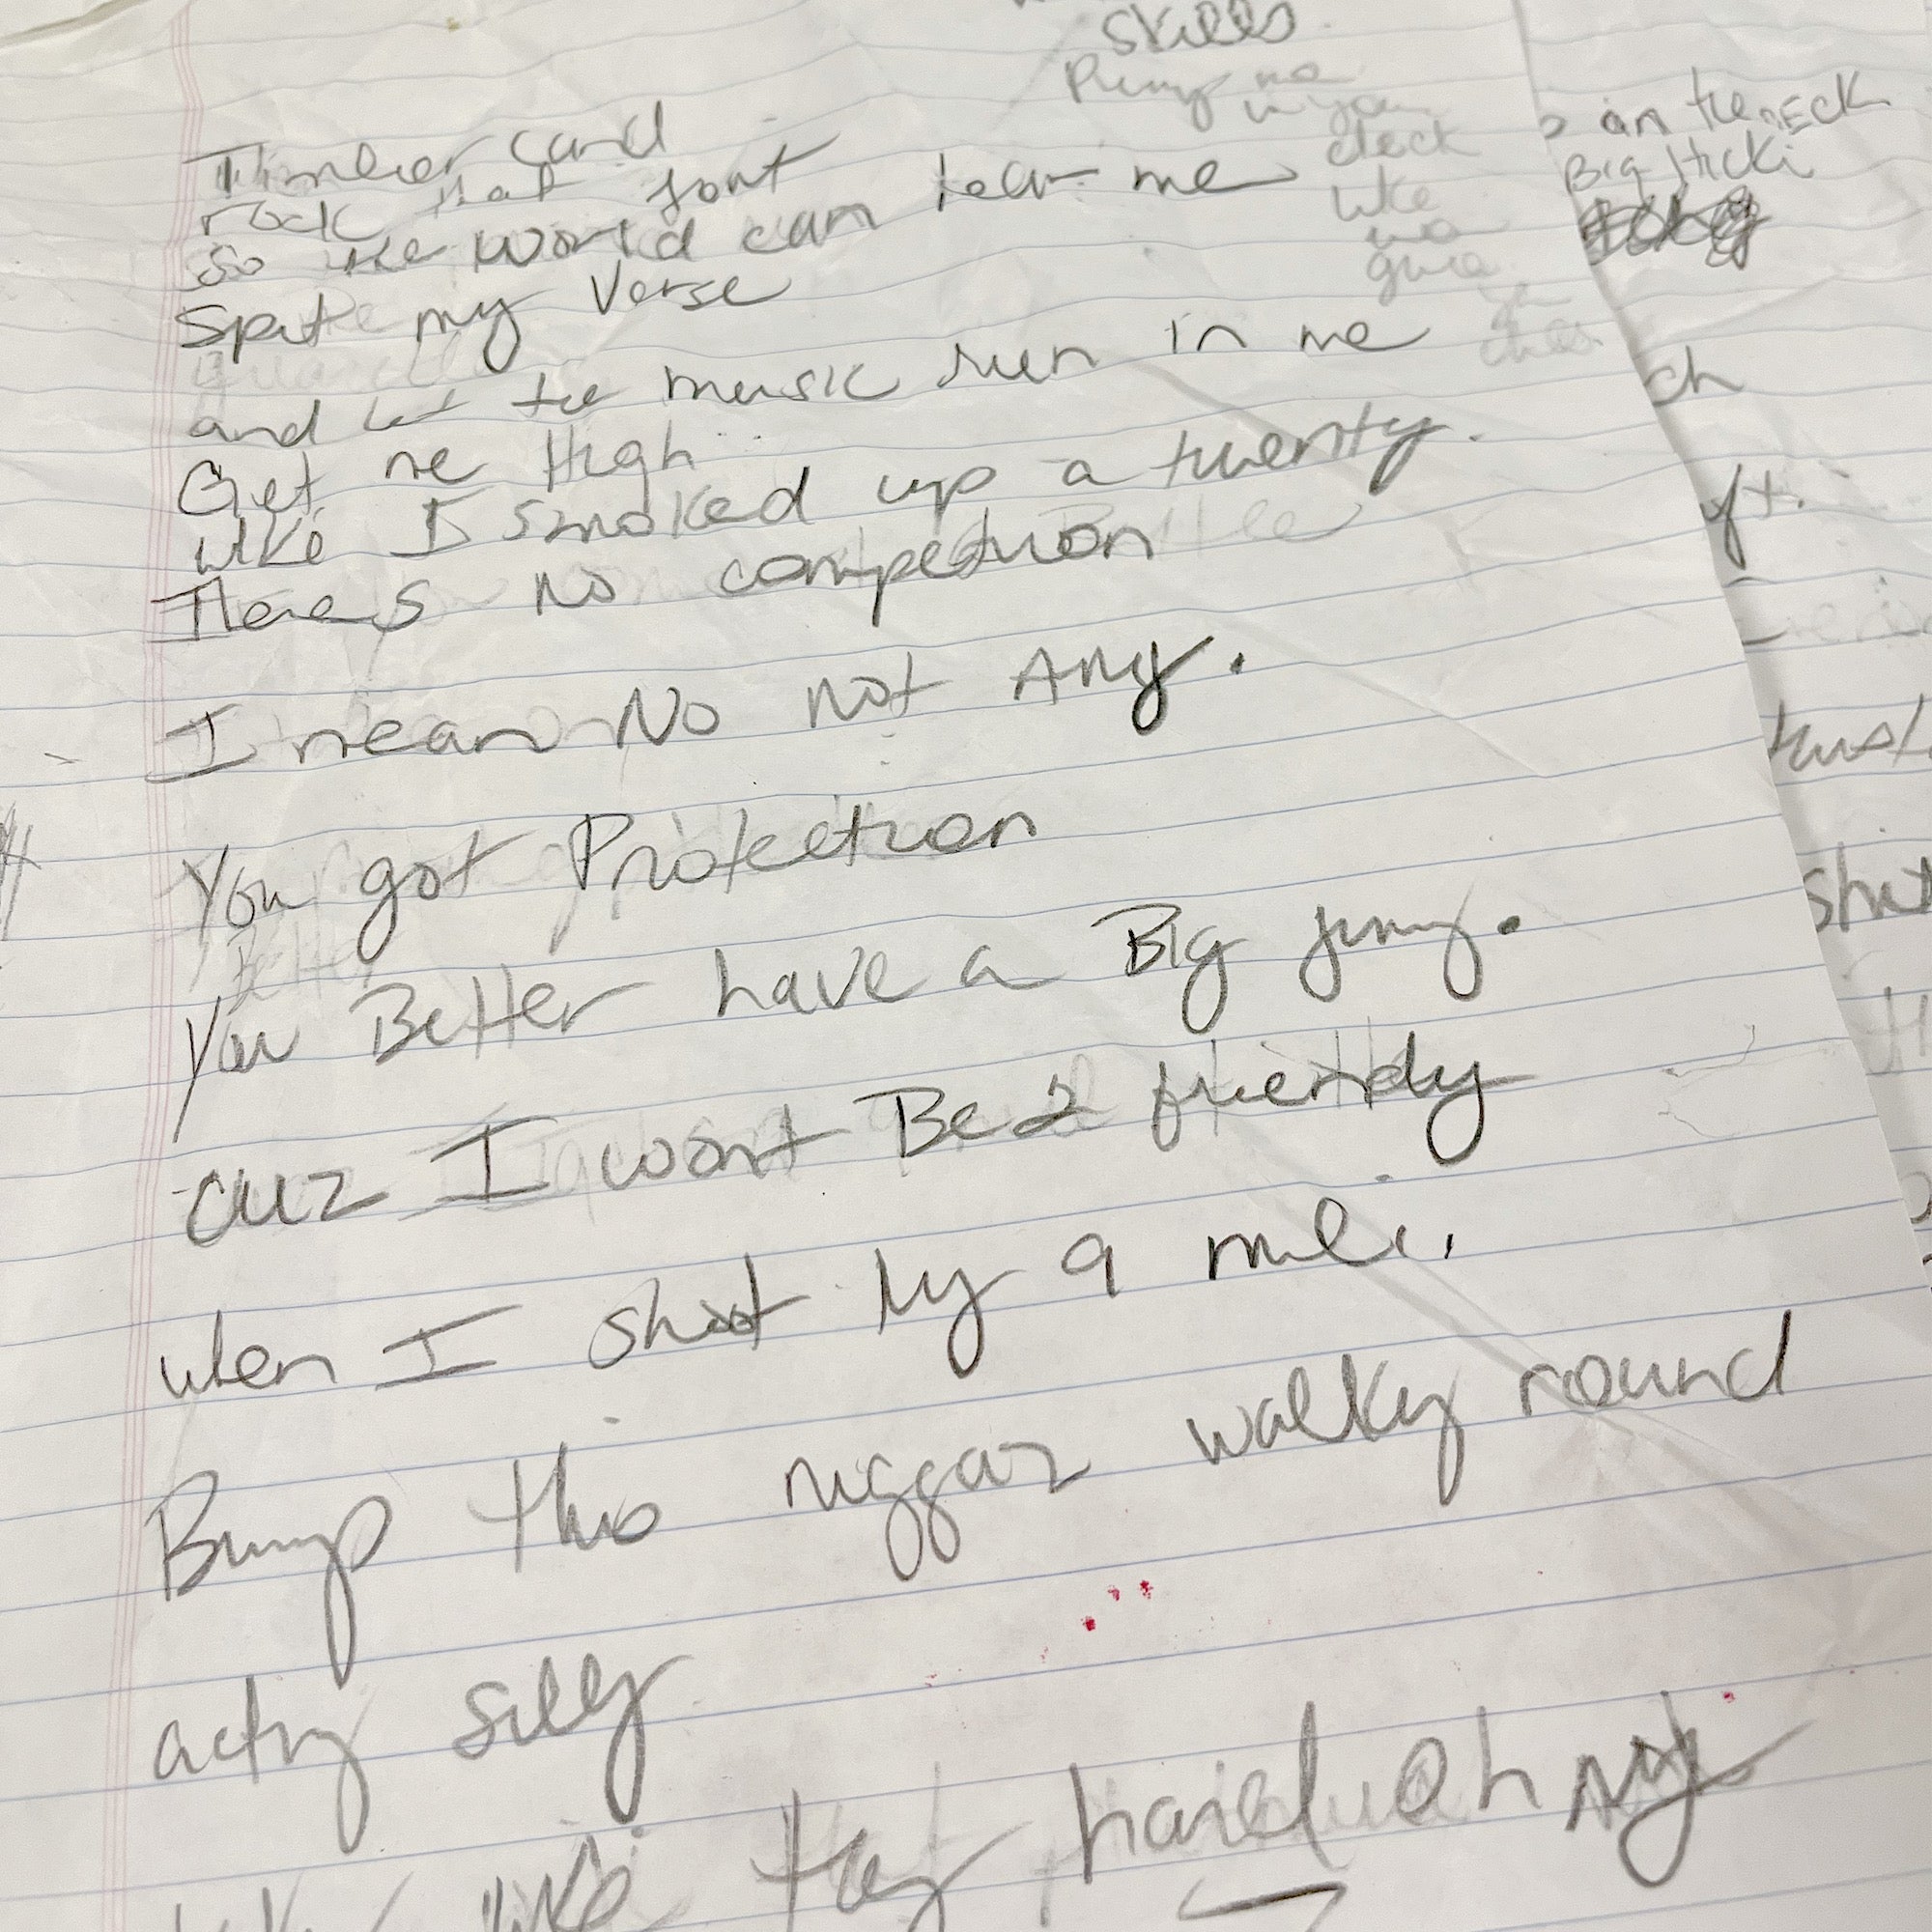 Skills
Pump
deck
like
Timberland
rock that joint
So the world can hear me
Spit my Verse
and let the music run in me
Get me High
like I smoked up a twenty.
Theres no competition
I mean No not Any.
You got Protection
You Better have a Big jimmy.
cuz I wont Be 2 friendly
when I shoot my 9 mili.
Bump this niggaz walky round
acting silly
like they hard oh my
on the nEck
Big Hicki
ch
shit